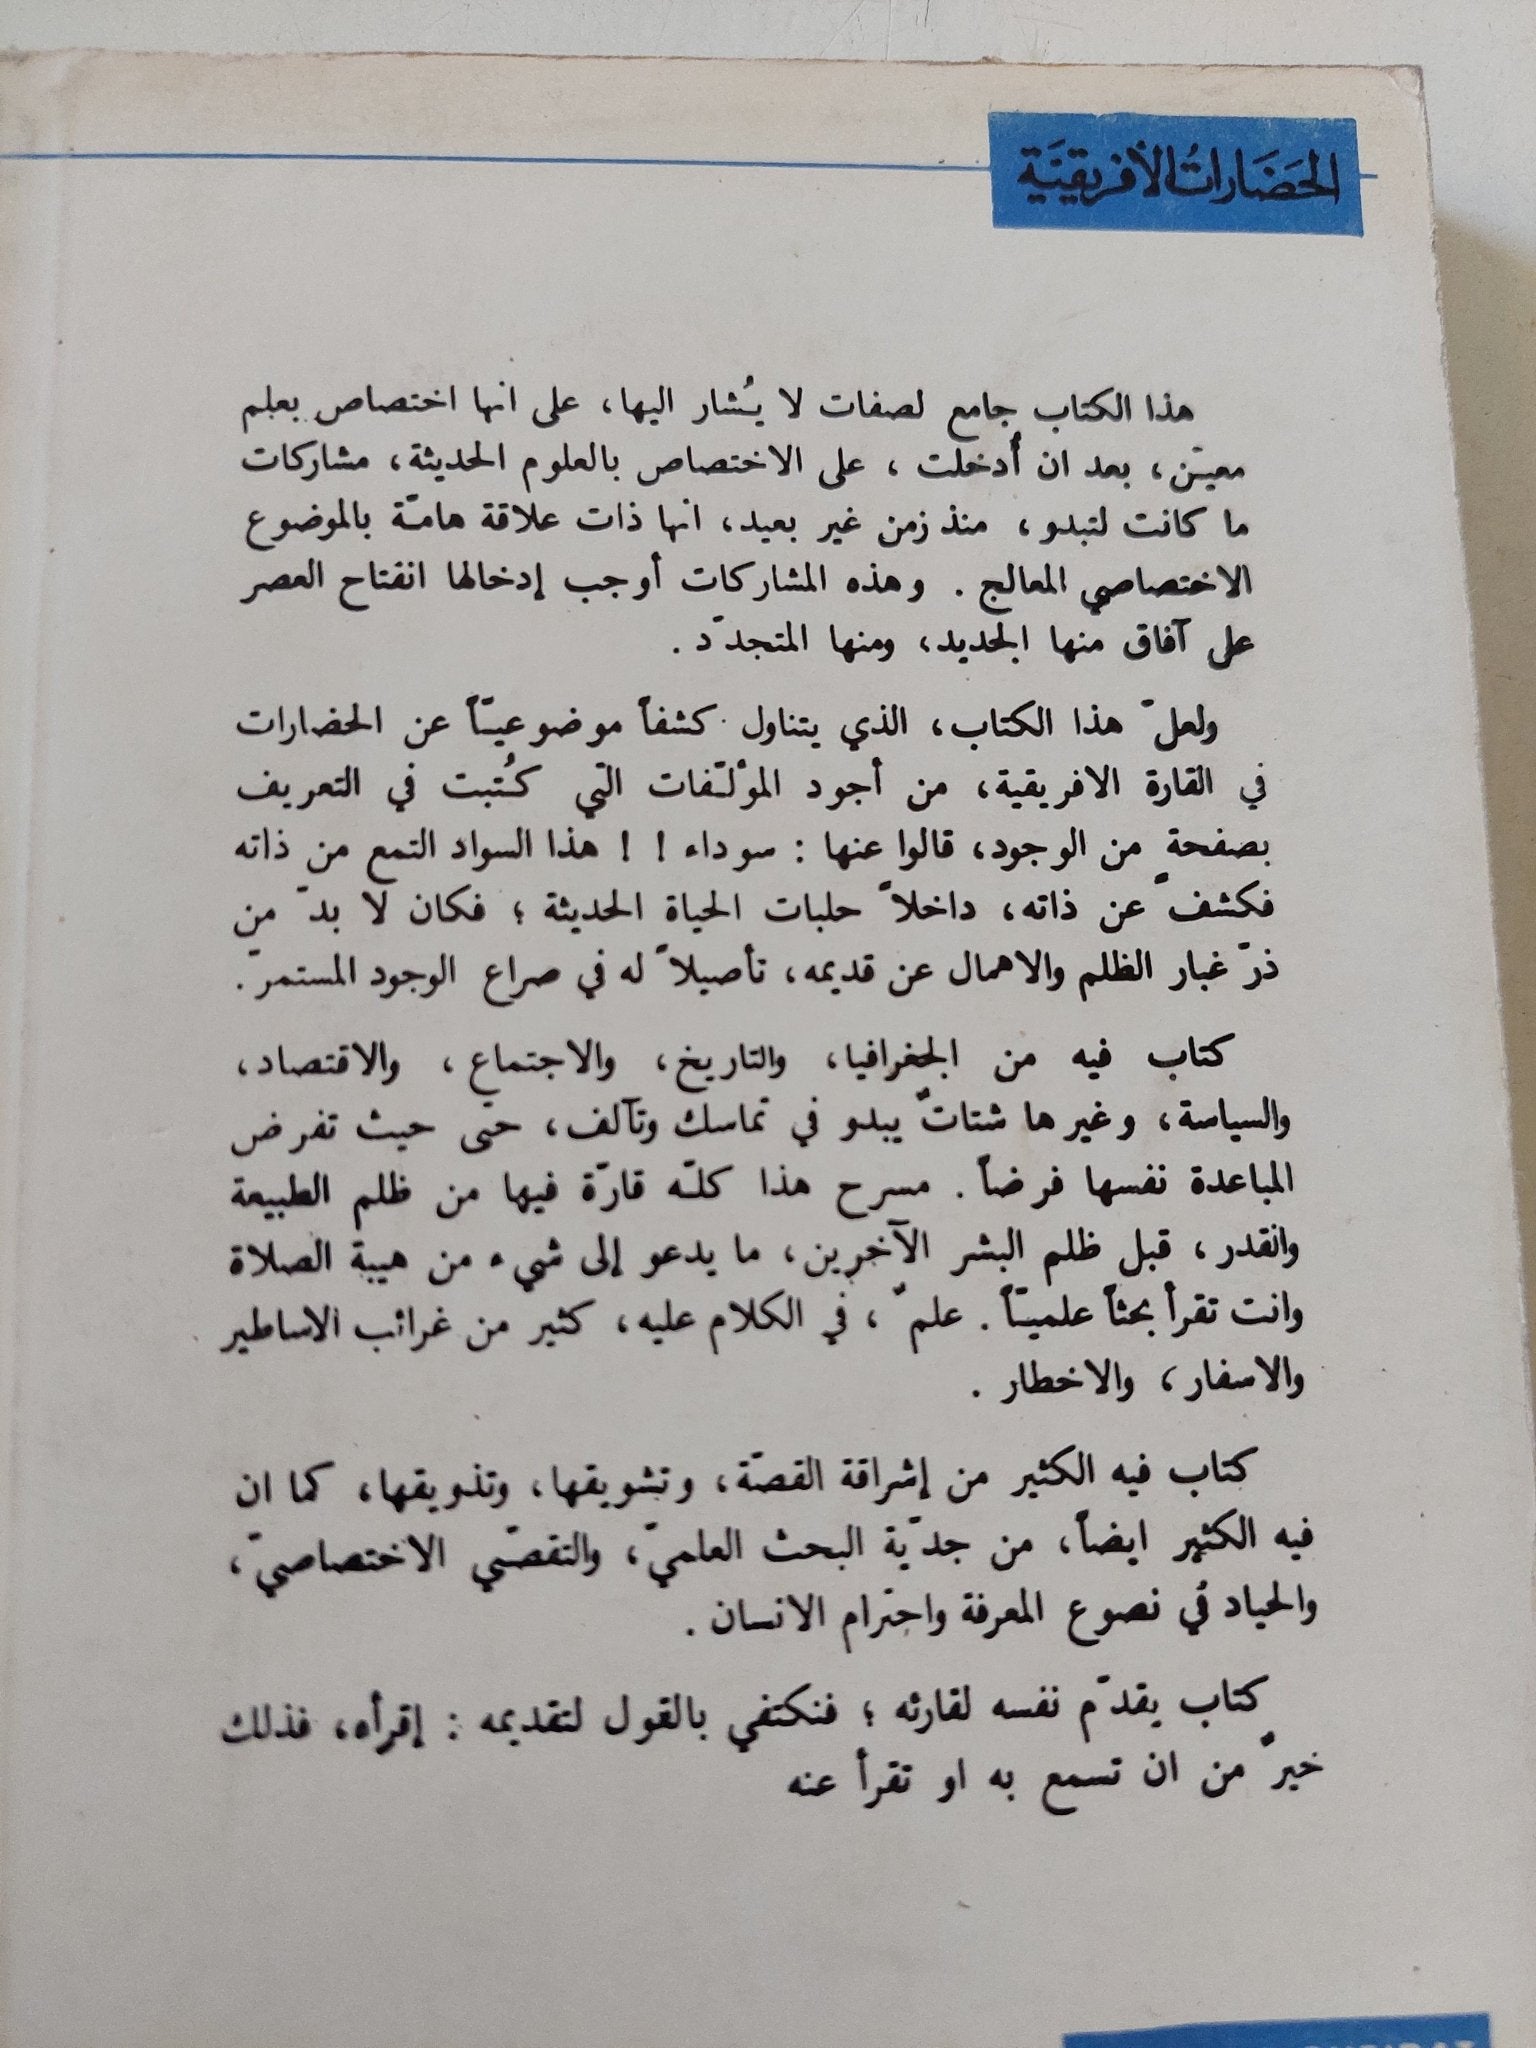 الحَضَاراتُ الأفريقيَة
هذا الكتاب جامع لصفات لا يُشار اليها، على انها اختصاص بعلم
معيّن، بعد ان أُدخلت ، على الاختصاص بالعلوم الحديثة، مشاركات
ما كانت لتبدو، منذ زمن غير بعيد، انها ذات علاقة هامّة بالموضوع
الاختصاصي المعالج . وهذه المشاركات أوجب إدخالها انفتاح العصر
على آفاق منها الجديد، ومنها المتجدّد .
ولعلّ هذا الكتاب، الذي يتناول كشفاً موضوعيّاً عن الحضارات
في القارة الافريقية، من أجود المؤلّفات التي كُتبت في التعريف
بصفحة من الوجود، قالوا عنها : سوداء ! ! هذا السواد التمع من ذاته
فكشف عن ذاته، داخلاً حلبات الحياة الحديثة ؛ فكان لا بدّ من
ذرّ غبار الظلم والاهمال عن قديمه، تأصيلاً له في صراع الوجود المستمرّ .
كتاب فيه من الجغرافيا، والتاريخ، والاجتماع، والاقتصاد،
والسياسة، وغيرها شتاتٌ يبدو في تماسك وتآلف، حتى حيث تفرض
المباعدة نفسها فرضاً . مسرح هذا كلّه قارّة فيها من ظلم الطبيعة
وانقدر، قبل ظلم البشر الآخرين، ما يدعو إلى شيء من هيبة الصلاة
وانت تقرأ بحثاً علميّاً . علمٌ ، في الكلام عليه، كثير من غرائب الاساطير
والاسفار، والاخطار .
كتاب فيه الكثير من إشراقة القصّة، وتشويقها، وتذويقها، كما ان
فيه الكثير ايضاً، من جدّية البحث العلميّ، والتقصّي الاختصاصيّ،
والحياد في نصوع المعرفة واحترام الانسان .
كتاب يقدّم نفسه لقارئه ؛ فنكتفي بالقول لتقديمه : إقرأه، فذلك
خيرٌ من ان تسمع به او تقرأ عنه